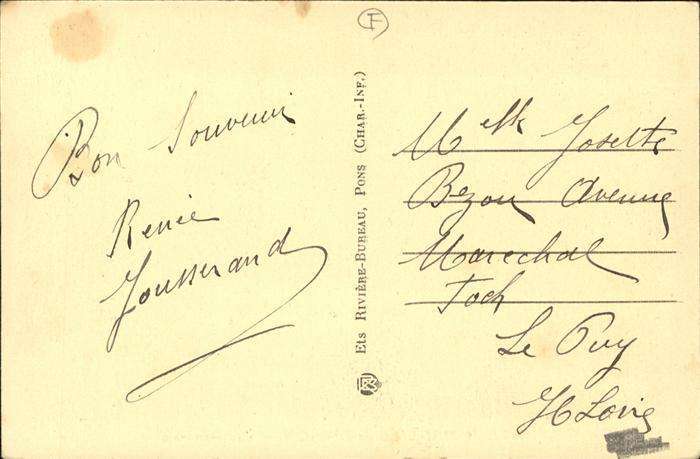 F
Bon Souvenir
Renée
Jousserand
Ets RIVIÈRE-BUREAU, PONS (CHAR.-INF.)
Melle Josette
Bezon Avenue
Marechal
Foch
Le Puy
H Loire